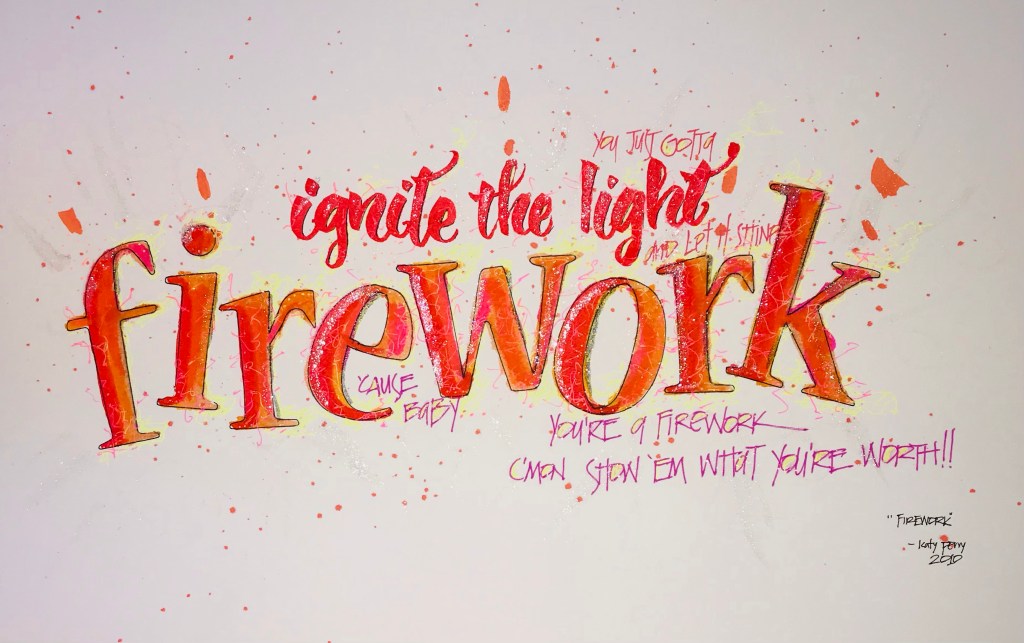 You Just Gotta
ignite the light
and Let it Shine
firework
'Cause
Baby
You're a Firework
C'mon Show 'Em What You're Worth!!
"Firework"
- Katy Perry
2010